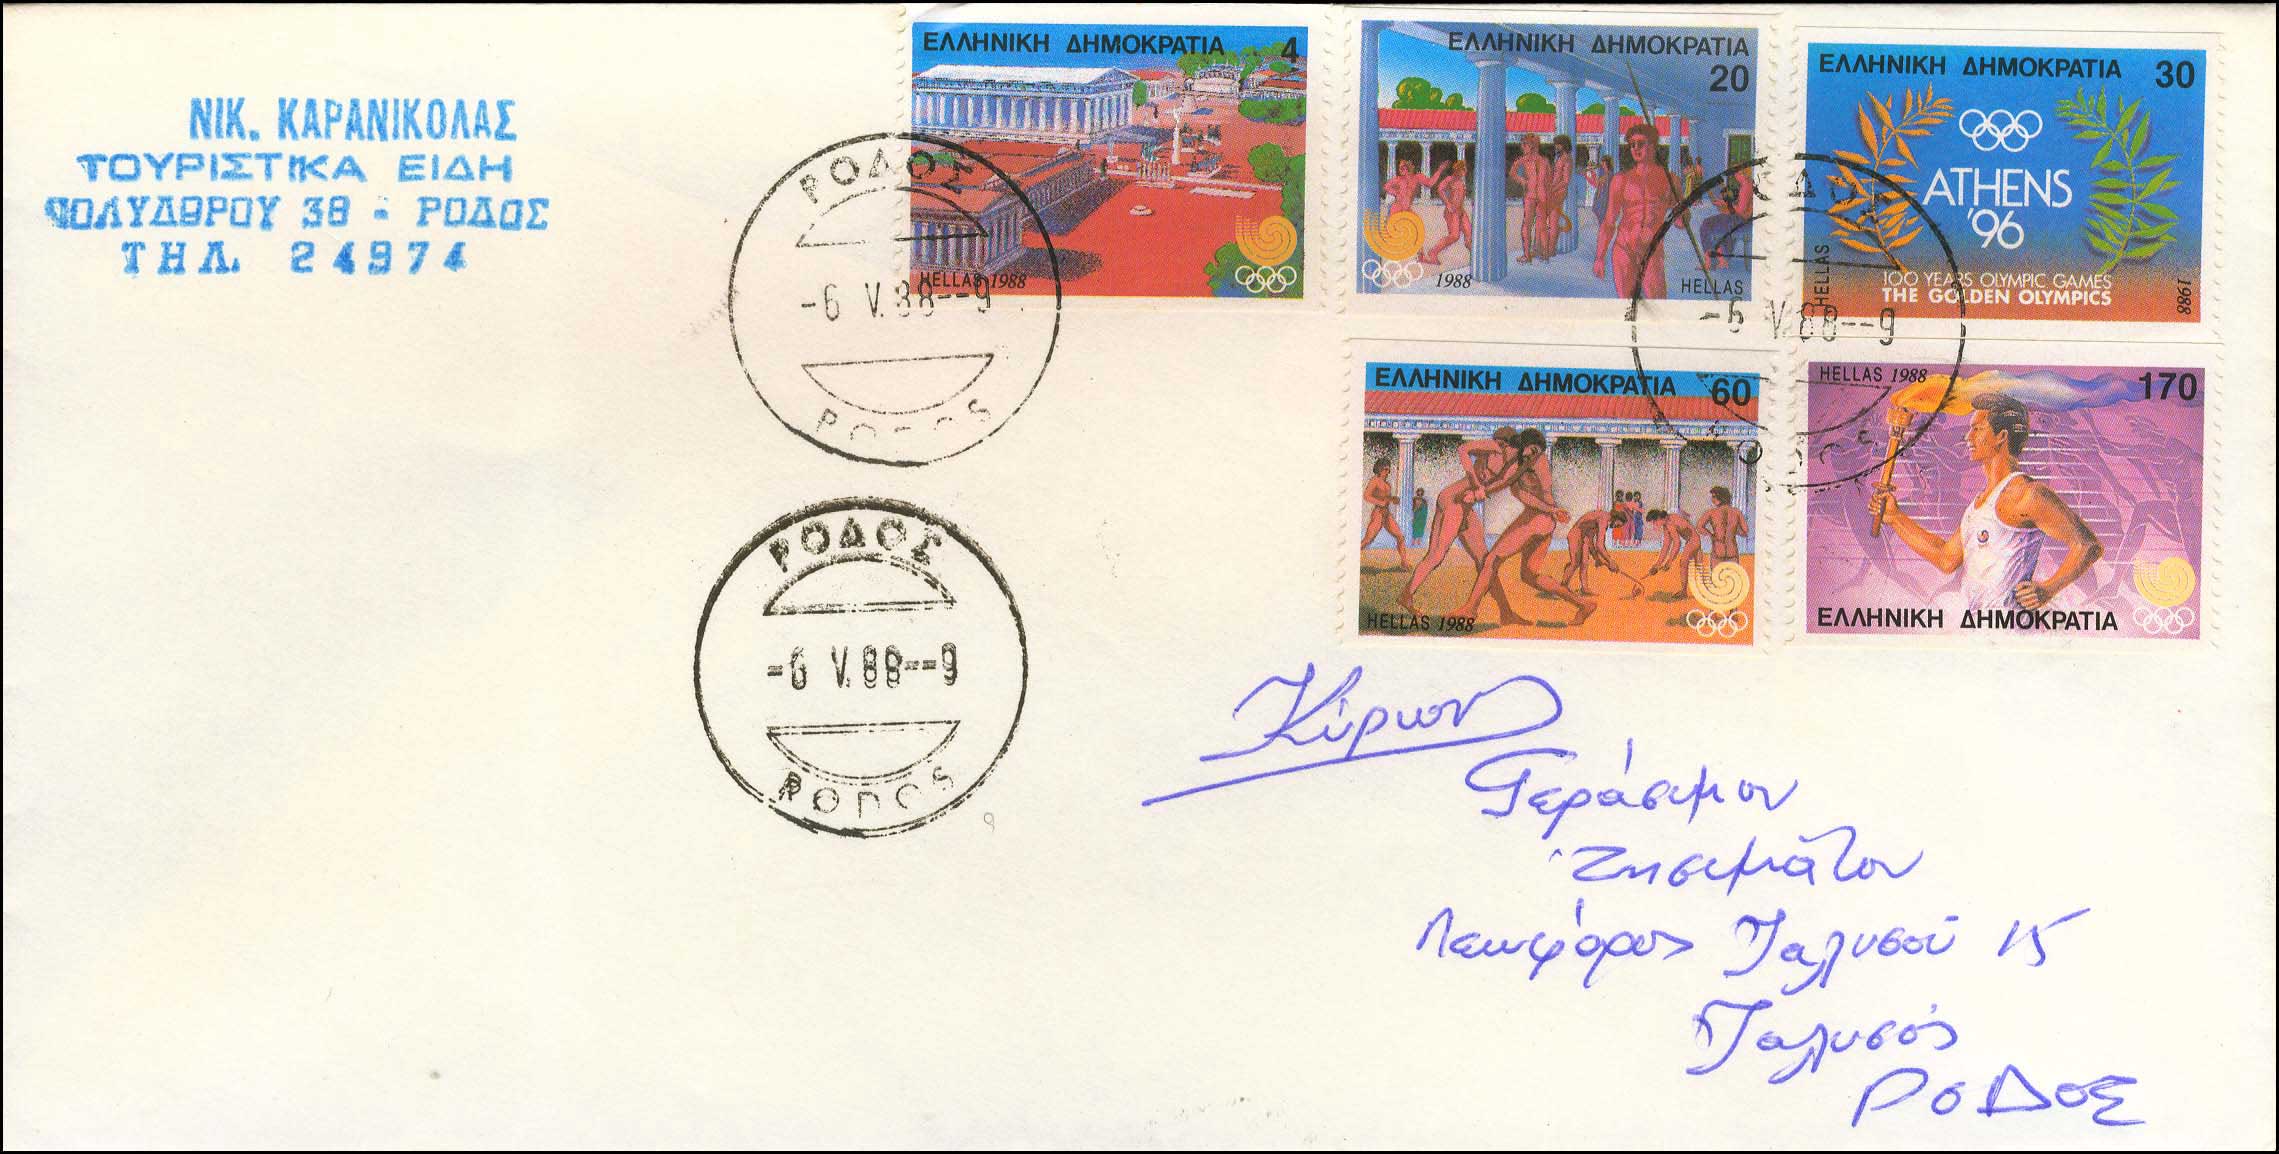 ΝΙΚ. ΚΑΡΑΝΙΚΟΛΑΣ
ΤΟΥΡΙΣΤΙΚΑ ΕΙΔΗ
ΠΟΛΥΔΩΡΟΥ 38 - ΡΟΔΟΣ
ΤΗΛ. 24974
ΕΛΛΗΝΙΚΗ ΔΗΜΟΚΡΑΤΙΑ 4
HELLAS 1988
ΕΛΛΗΝΙΚΗ ΔΗΜΟΚΡΑΤΙΑ
20
1988 HELLAS
ΕΛΛΗΝΙΚΗ ΔΗΜΟΚΡΑΤΙΑ 30
ATHENS
'96
100 YEARS OLYMPIC GAMES
THE GOLDEN OLYMPICS
HELLAS
1988
ΕΛΛΗΝΙΚΗ ΔΗΜΟΚΡΑΤΙΑ
60
HELLAS 1988
HELLAS 1988 170
ΕΛΛΗΝΙΚΗ ΔΗΜΟΚΡΑΤΙΑ
ΡΟΔΟΣ
-6 V.88--9
RODOS
ΡΟΔΟΣ
-6 V.88--9
ΡΟΔΟΣ
-6 V.88--9
RODOS
Κύριον
Γεράσιμον
Ζησιμάτον
Λεωφόρος Ιαλυσού 15
Ιαλυσός
ΡΟΔΟΣ